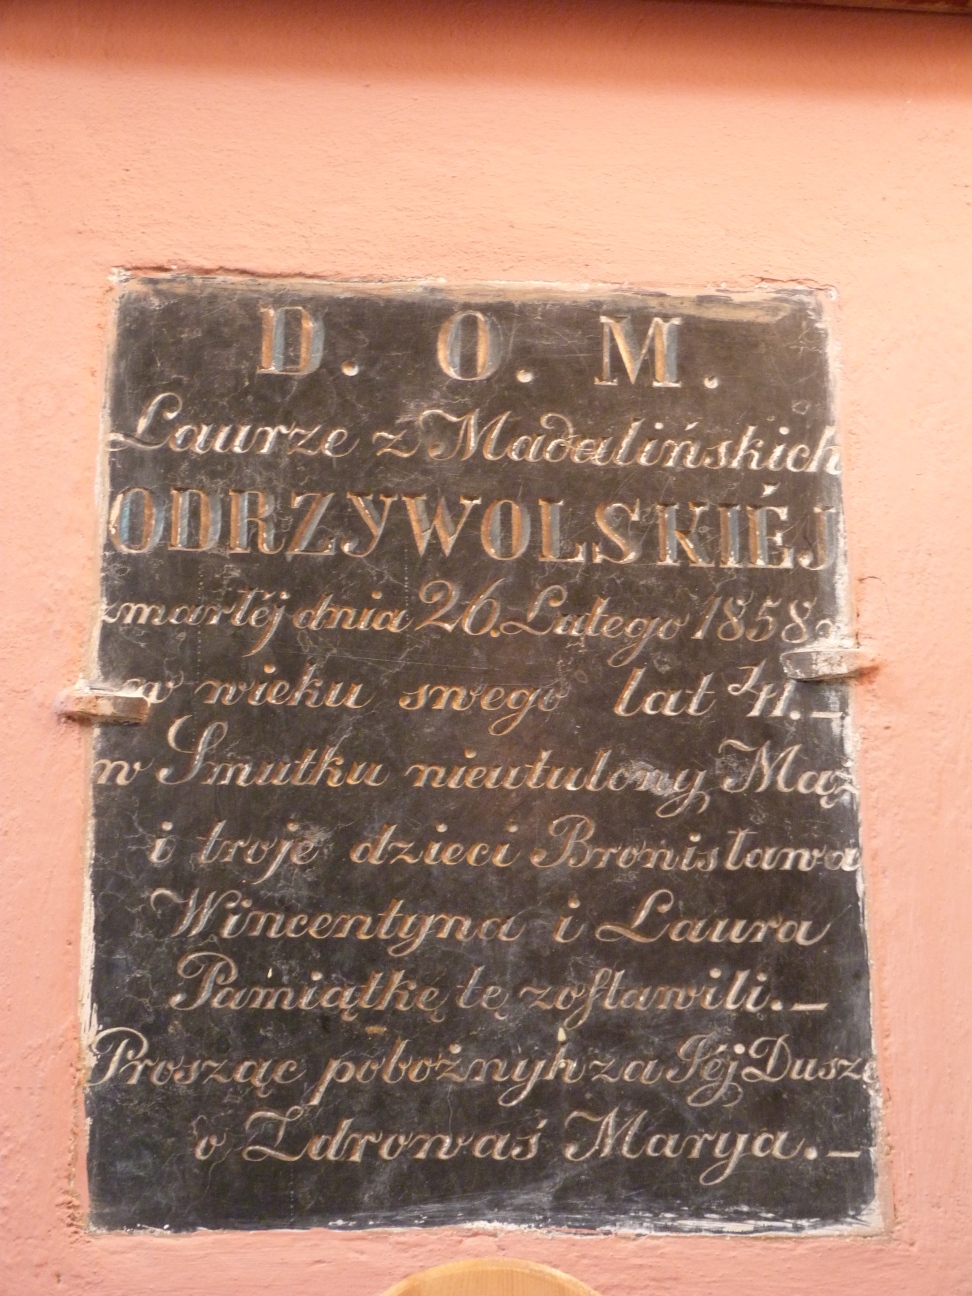 D. O. M.
Laurze z Madalińskich
ODRZYWOLSKIÉJ
zmarłéj dnia 26. Lutego 1858
w wieku swego lat 41. –
w Smutku nieutulony Mąż
i troje dzieci Bronisława
Wincentyna i Laura
Pamiątkę tę zostawili. –
Prosząc pobożnyh za Jéj Dusze
o Zdrowaś Marya. –